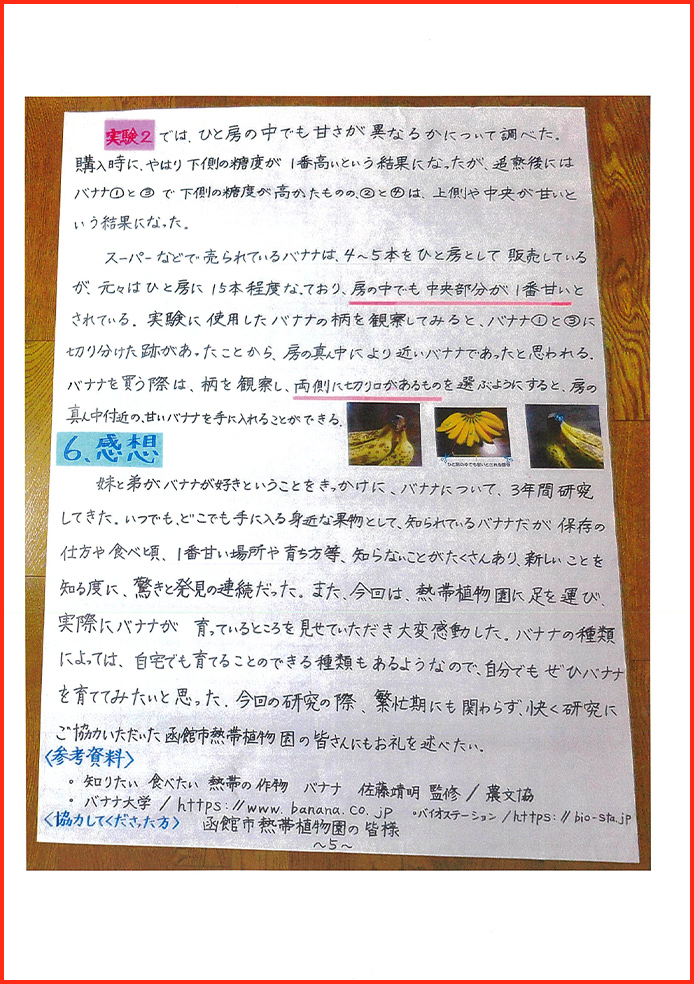 実験2 では、ひと房の中でも甘さが異なるかについて調べた。
購入時に、やはり下側の糖度が1番高いという結果になったが、追熟後には
バナナ①と③で下側の糖度が高かたものの、②と④は、上側や中央が甘いと
いう結果になった。
スーパーなどで売られているバナナは、4〜5本をひと房として販売している
が、元々はひと房に15本程度なっており、房の中でも中央部分が1番甘いと
されている。実験に使用したバナナの柄を観察してみると、バナナ①と③に
切り分けた跡があったことから、房の真ん中により近いバナナであったと思われる。
バナナを買う際は、柄を観察し、両側に切り口があるものを選ぶようにすると、房の
真ん中付近の、甘いバナナを手に入れることができる。
ひと房の中でも甘いとされる部分
6、感想
妹と弟がバナナが好きということをきっかけに、バナナについて、3年間研究
してきた。いつでも、どこでも手に入る身近な果物として、知られているバナナだが保存の
仕方や食べ頃、1番甘い場所や育ち方等、知らないことがたくさんあり、新しいことを
知る度に、驚きと発見の連続だった。また、今回は、熱帯植物園に足を運び、
実際にバナナが育っているところを見せていただき大変感動した。バナナの種類
によっては、自宅でも育てることのできる種類もあるようなので、自分でもぜひバナナ
を育ててみたいと思った。今回の研究の際、繁忙期にも関わらず、快く研究に
ご協力いただいた函館市熱帯植物園の皆さんにもお礼を述べたい。
〈参考資料〉
・知りたい 食べたい 熱帯の作物 バナナ 佐藤靖明 監修/農文協
・バナナ大学/https://www.banana.co.jp ・バイオステーション/https://bio-sta.jp
〈協力してくださった方〉 函館市熱帯植物園の皆様
〜5〜